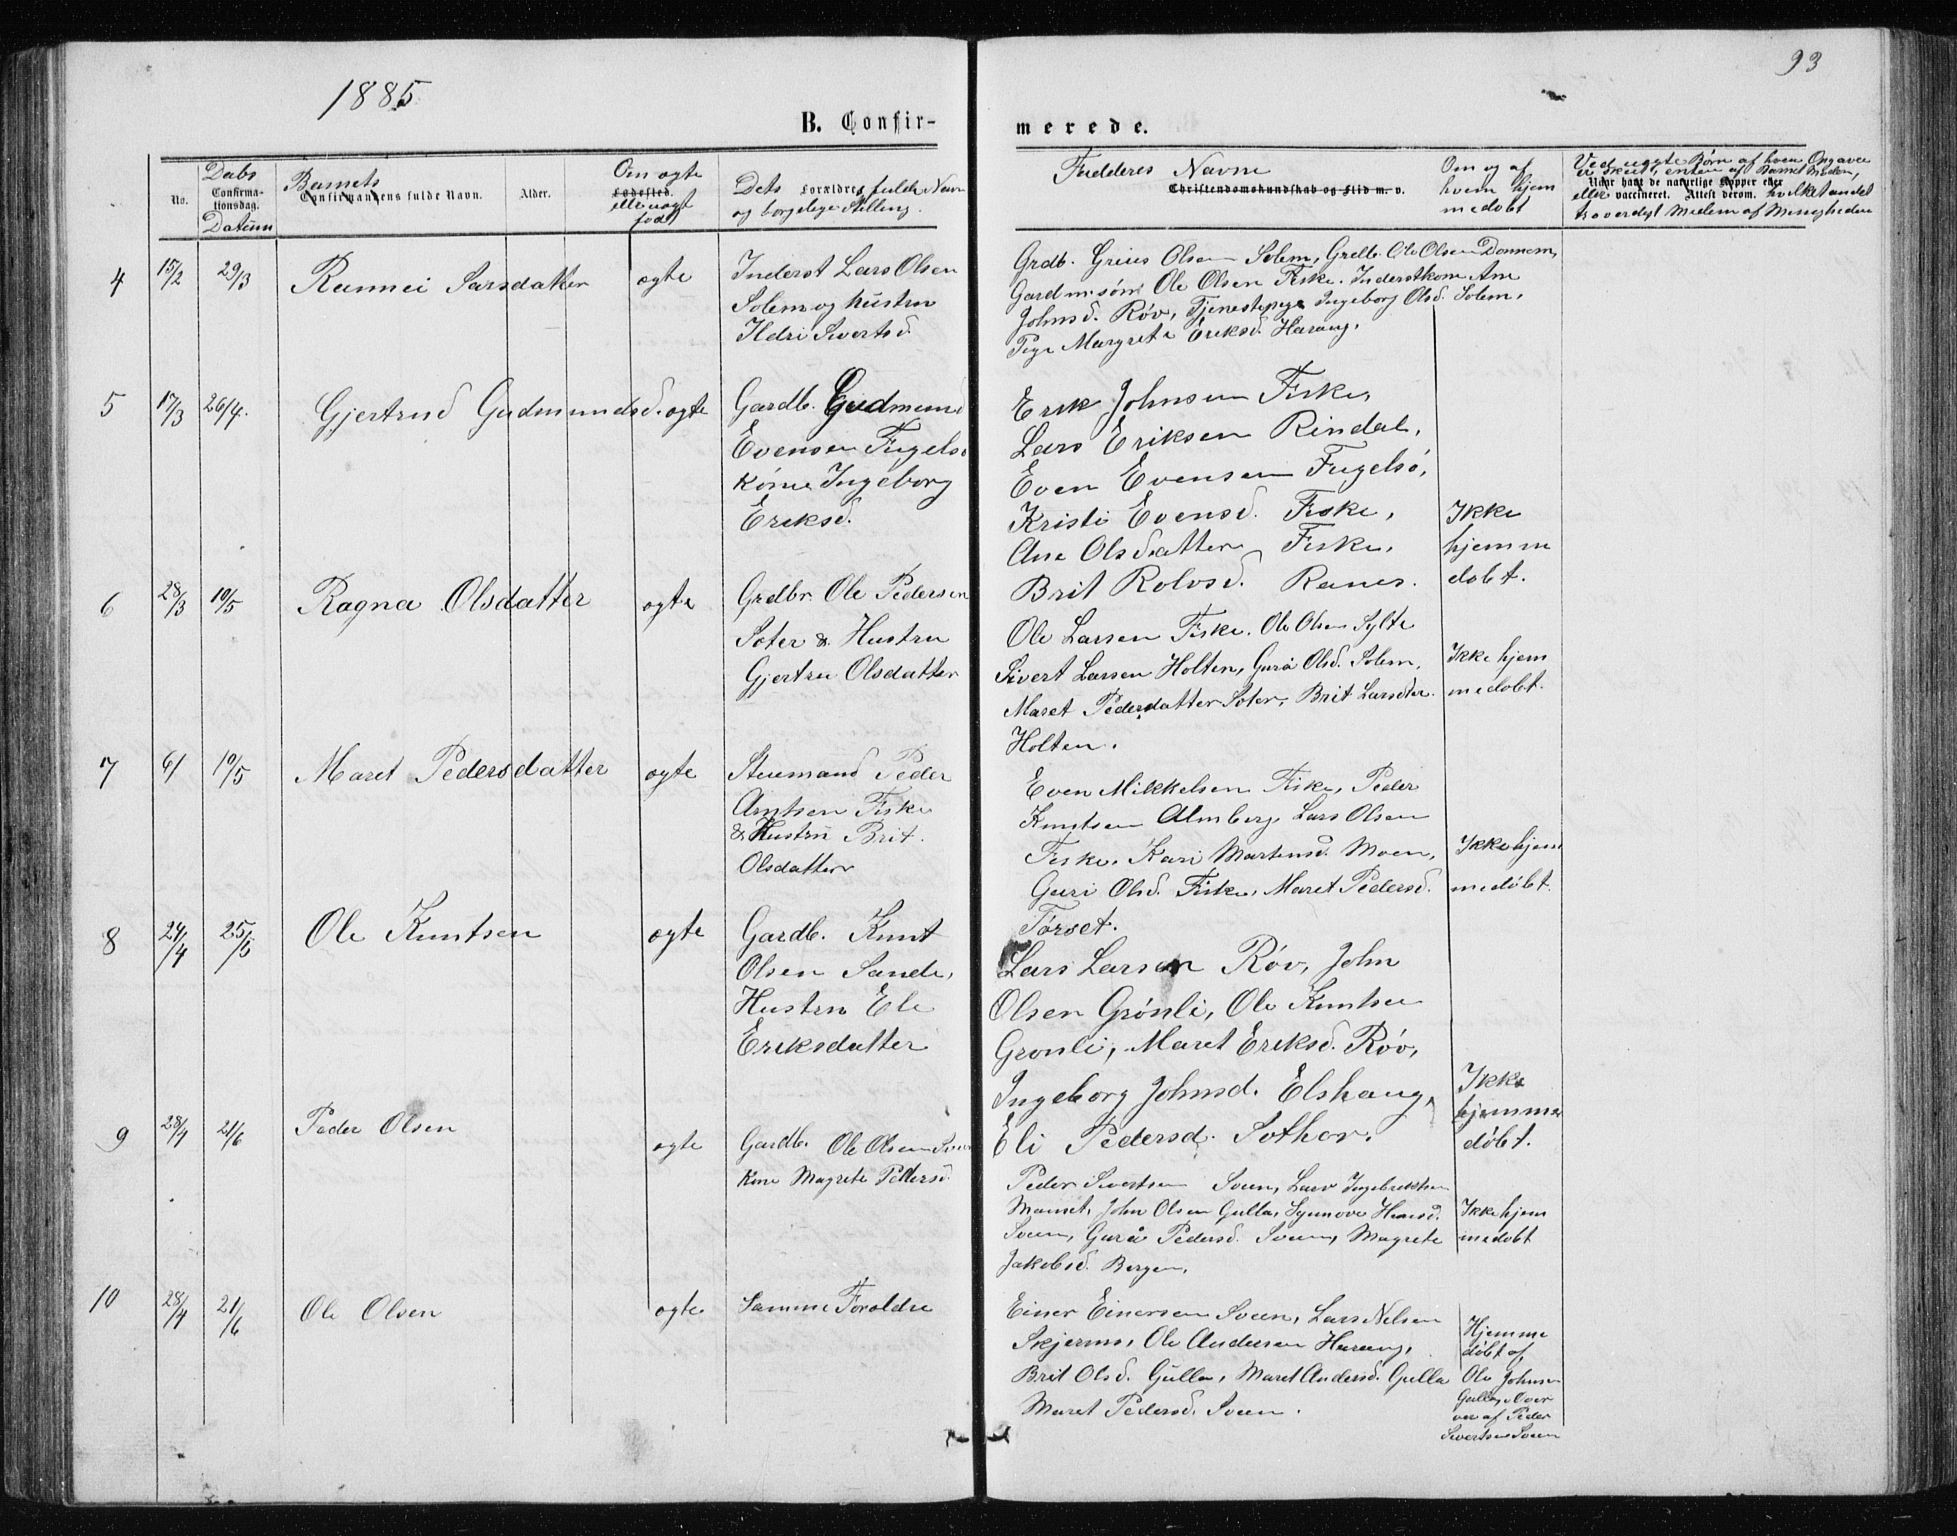 1885
93
B. Confir-
merede.
No.
Dabs
Confirma-
tionsdag.
Datum
Barnets
Confirmandens fulde Navn.
Alder.
Om ægte
Fødested.
eller uægt
født
Dets Forældres fulde Navn
og borgelige Stilling.
Fadderes Navne
Christendomskundskab og Flid m. v.
Om og af
hvem hjem
medøbt
Ved uægte Børn af hven Opgaven
er skeet, enten af Barnets Moder,
Naar havt de naturlige Kopper eller
eller vaccineret. Attest derom. hvilket andet
troverdigt Medlem af Menigheden
4
15/2
29/3
Rannei Larsdatter
ægte
Inderst Lars Olsen
Solem og hustru
Ildri Sivertsd.
Grdb. Olsen Solem, Grdb. Ole Olsen Donnem,
Gardmsøn Ole Olsen Fiske. Inderstkone Ane
Johnsd. Røv, Tjenestepige Ingeborg Olsd. Solem,
Pige Margrete Eriksd. Harang.
5
17/3
26/4.
Gjertrud Gudmundsd.
ægte
Gardb. Gudmund
Evensen Fugelsø
kone Ingeborg
Eriksd.
Erik Johnsen Fiske,
Lars Eriksen Rindal,
Even Evensen Fugelsø,
Kristi Evensd. Fiske,
Ane Olsdatter Fiske,
Brit Rolvsd. Ranes.
Ikke
hjemme
døbt.
6
28/3
10/5
Ragna Olsdatter
ægte
Grdbr. Ole Pedersen
Soter & Hustru
Gjertru Olsdatter
Ole Larsen Fiske. Ole Olsen Sylte
Sivert Larsen Holten, Gurå Olsd. Solem,
Maret Pedersdatter Soter, Brit Larsdter.
Holten.
Ikke hjem
medøbt.
7
6/
10/5
Maret Pedersdatter
ægte
Stuemand Peder
Arntsen Fiske
& Hustru Brit
Olsdatter
Even Mikkelsen Fiske, Peder
Knutsen Almberg, Lars Olsen
Fiske. Kari Martensd. Moen,
Guri Olsd. Fiske, Maret Pedersd.
Tørset.
Ikke hjem
medøbt.
8
24/4
25/5
Ole Knutsen
ægte
Gardb. Knut
Olsen Sande,
Hustru Eli
Eriksdatter
Lars Larsen Røv, John
Olsen Grønli, Ole Knutsen
Grønli, Maret Eriksd. Røv,
Ingeborg Johnsd. Elshaug,
Eli Pedersd. Sother.
Ikke
hjemme
døbt.
9
28/4
21/6
Peder Olsen
ægte
Gardb. Ole Olsen Sven
Kone Magrete Pedersd.
Peder Sivertsen Svean, Lars Ingebrektsen
Mauset, John Olsen Gulla, Synnøve Hansd.
Svean, Gurå Pedersd. Svean, Magrete
Jakobsd. Bergen.
Ikke hjem
medøbt
10
28/4
21/6
Ole Olsen
ægte
Samme Foroldre
Einer Einersen Svean, Lars Nelsen
Skjermo, Ole Andersen Harang,
Brit Olsd. Gulla, Maret Andersd. Gulla
Maret Pedersd. Svean.
Hjemme
døbt af
Ole Johnsen
Gulla, Over
vær af Peder
Sivertsen Svean